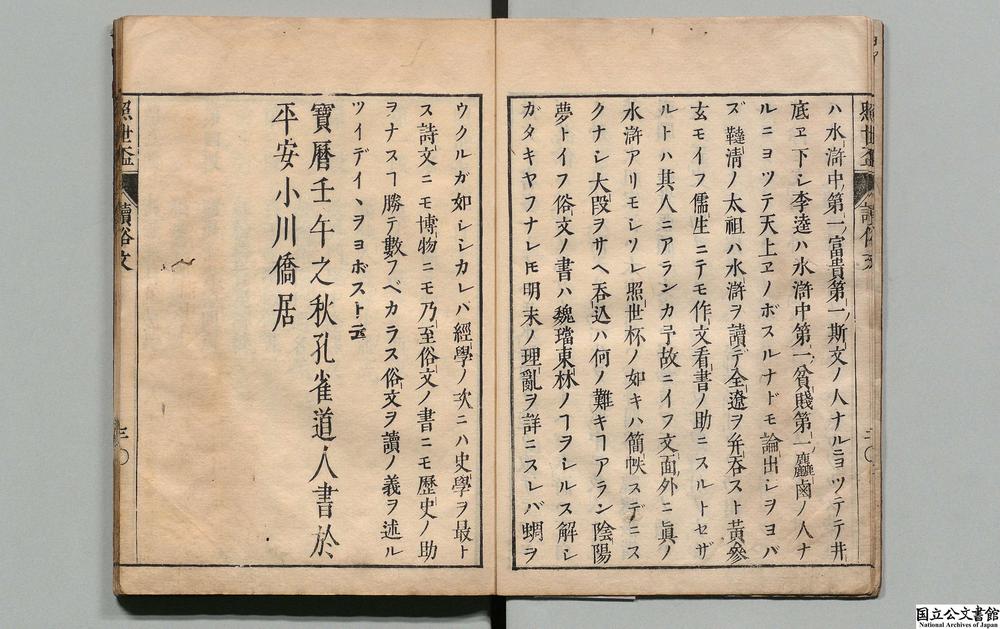 照世盃
讀俗文
三〇
ハ水滸中第一富貴第一斯文ノ人ナルニヨツテテ井
底ヱ下シ李逵ハ水滸中第一貧賤第一麤鹵ノ人ナ
ルニヨツテ天上ヱノボスルナドモ論出シヲヨバ
ズ韃清ノ太祖ハ水滸ヲ讀デ全遼ヲ弁吞スト黃參
玄モイフ儒生ニテモ作文看書ノ助ニスルトセザ
ルトハ其人ニアランカ予故ニイフ文面外ニ眞ノ
水滸アリモシソレ照世杯ノ如キハ簡帙ステニス
クナシ大段ヲサヘ吞込ハ何ノ難キヿアラン陰陽
夢トイフ俗文ノ書ハ魏璫東林ノヿヲシルス解シ
ガタキヤフナレ𪜈明末ノ理亂ヲ詳ニスレバ蜩ヲ
ウクルガ如シシカレバ經學ノ次ニハ史學ヲ最ト
ス詩文ニモ博物ニモ乃至俗文ノ書ニモ歷史ノ助
ヲナスヿ勝テ數フベカラス俗文ヲ讀ノ義ヲ述ル
ツイデイヽヲヨボスト云
寶暦壬午之秋孔雀道人書於
平安小川僑居
照世盃
讀俗文
三〇
国立公文書館
National Archives of Japan